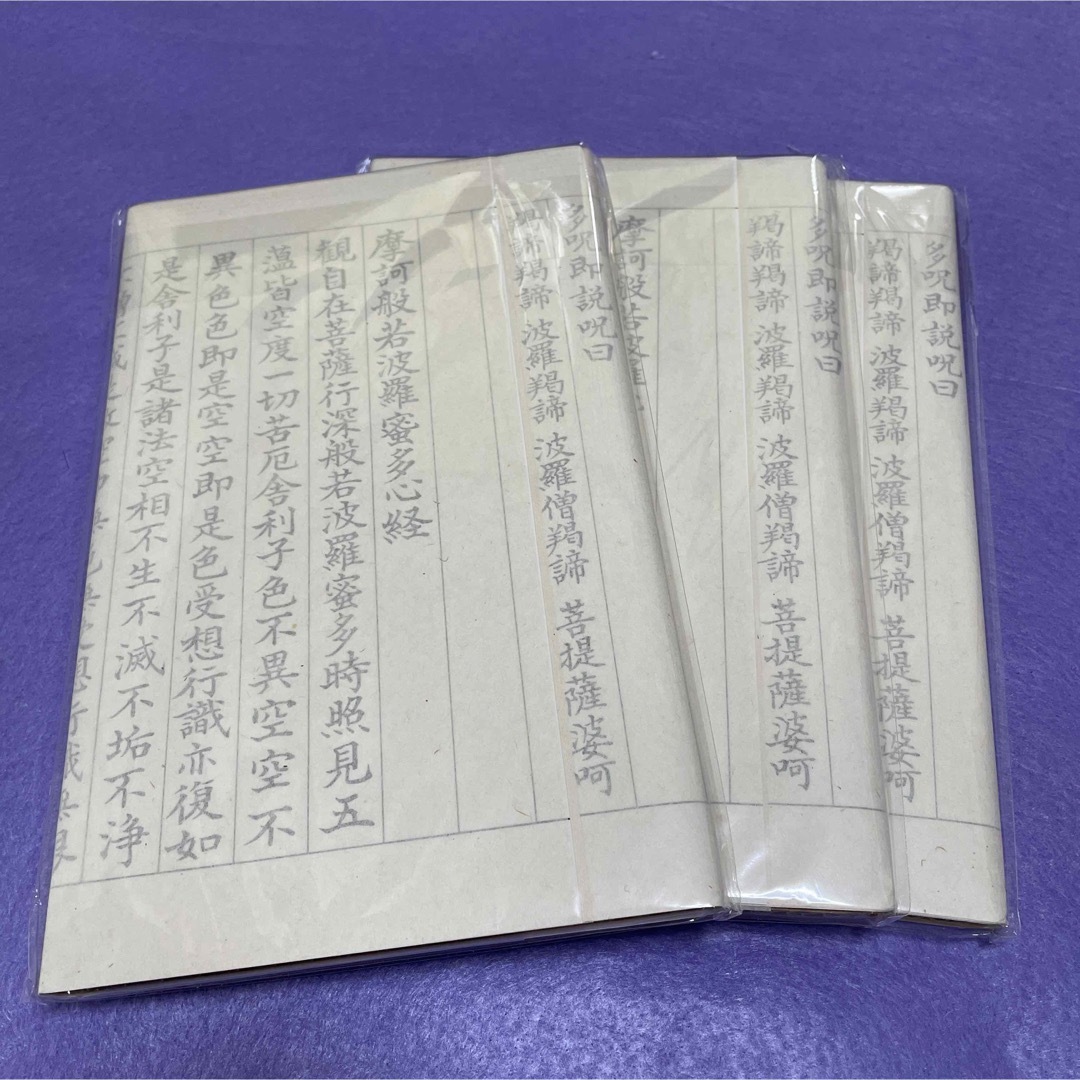 多呪即説呪曰
羯諦羯諦 波羅羯諦 波羅僧羯諦 菩提薩婆呵
多呪即説呪曰
羯諦羯諦 波羅羯諦 波羅僧羯諦 菩提薩婆呵
摩訶般若波羅
多呪即説呪曰
羯諦羯諦 波羅羯諦 波羅僧羯諦 菩提薩婆呵
摩訶般若波羅蜜多心経
観自在菩薩行深般若波羅蜜多時照見五
薀皆空度一切苦厄舎利子色不異空空不
異色色即是空空即是色受想行識亦復如
是舎利子是諸法空相不生不滅不垢不浄